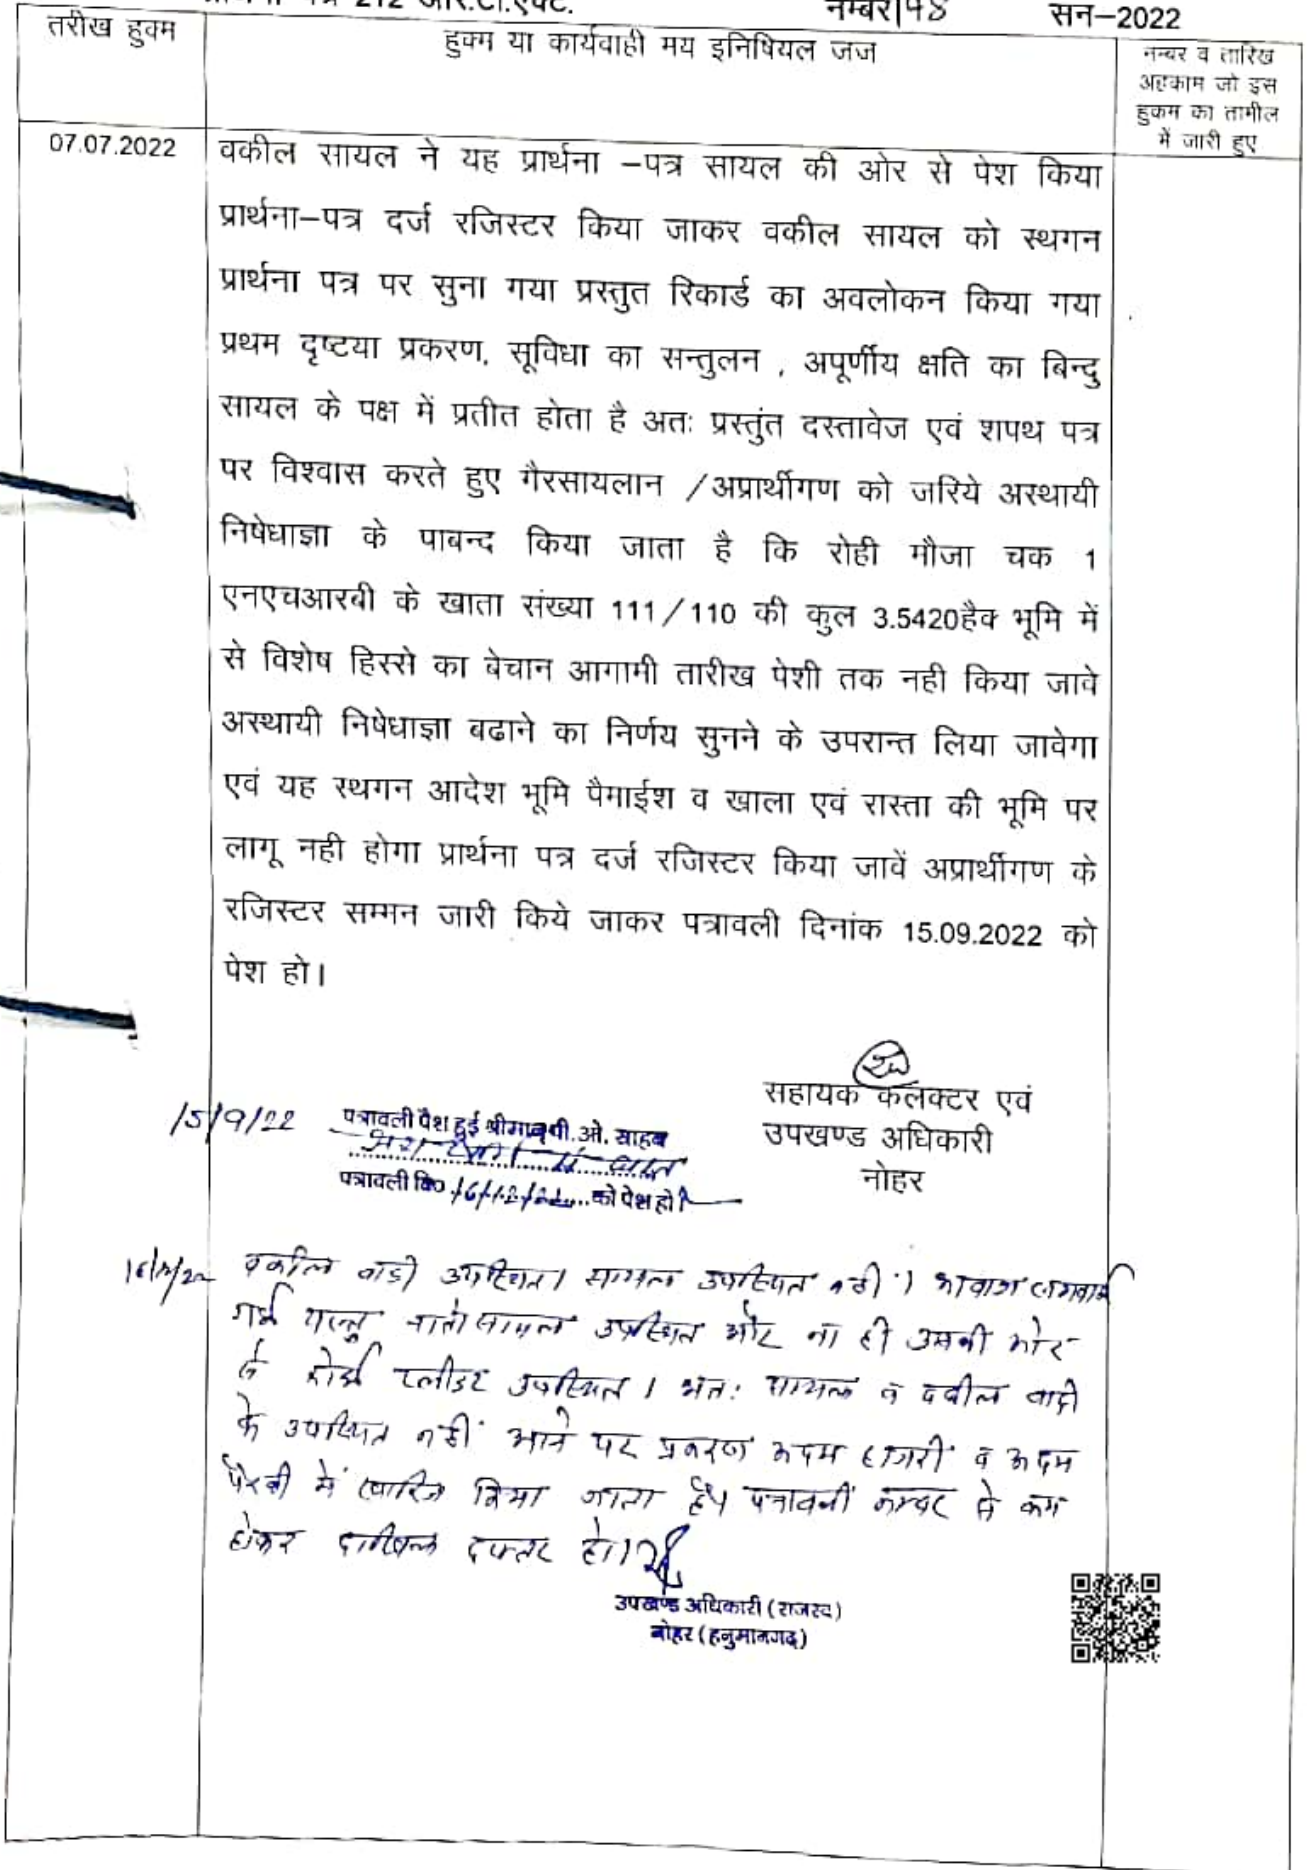 प्रार्थना पत्र 212 आर.टी.एक्ट. नम्बर|48 सन–2022
तरीख हुक्म
हुक्म या कार्यवाही मय इनिषियल जज
नम्बर व तारिख
अहकाम जो इस
हुकम का तामील
में जारी हुए
07.07.2022
वकील सायल ने यह प्रार्थना –पत्र सायल की ओर से पेश किया
प्रार्थना–पत्र दर्ज रजिस्टर किया जाकर वकील सायल को स्थगन
प्रार्थना पत्र पर सुना गया प्रस्तुत रिकार्ड का अवलोकन किया गया
प्रथम दृष्टया प्रकरण, सूविधा का सन्तुलन , अपूर्णीय क्षति का बिन्दु
सायल के पक्ष में प्रतीत होता है अतः प्रस्तुंत दस्तावेज एवं शपथ पत्र
पर विश्वास करते हुए गैरसायलान /अप्रार्थीगण को जरिये अस्थायी
निषेधाज्ञा के पाबन्द किया जाता है कि रोही मौजा चक 1
एनएचआरबी के खाता संख्या 111/110 की कुल 3.5420हैक भूमि में
से विशेष हिस्से का बेचान आगामी तारीख पेशी तक नही किया जावे
अस्थायी निषेधाज्ञा बढाने का निर्णय सुनने के उपरान्त लिया जावेगा
एवं यह स्थगन आदेश भूमि पैमाईश व खाला एवं रास्ता की भूमि पर
लागू नही होगा प्रार्थना पत्र दर्ज रजिस्टर किया जावें अप्रार्थीगण के
रजिस्टर सम्मन जारी किये जाकर पत्रावली दिनांक 15.09.2022 को
पेश हो।
सहायक कलक्टर एवं
उपखण्ड अधिकारी
नोहर
15/9/22 पत्रावली पेश हुई श्रीमान् पी.ओ. साहब
पत्रावली दि0 16/12/22 को पेश हो।
16/12/22 वकील वादी उपस्थित। सायल उपस्थित नहीं। आवाज लगवाई
गई परन्तु ना तो सायल उपस्थित और ना ही उसकी ओर
से कोई प्लीडर उपस्थित। अतः सायल व वकील वादी
के उपस्थित नहीं आने पर प्रकरण अदम हाजरी व अदम
पैरवी में खारिज किया जाता है। पत्रावली नम्बर से कम
होकर दाखिल दफ्तर हो।
उपखण्ड अधिकारी (राजस्व)
नोहर (हनुमानगढ़)